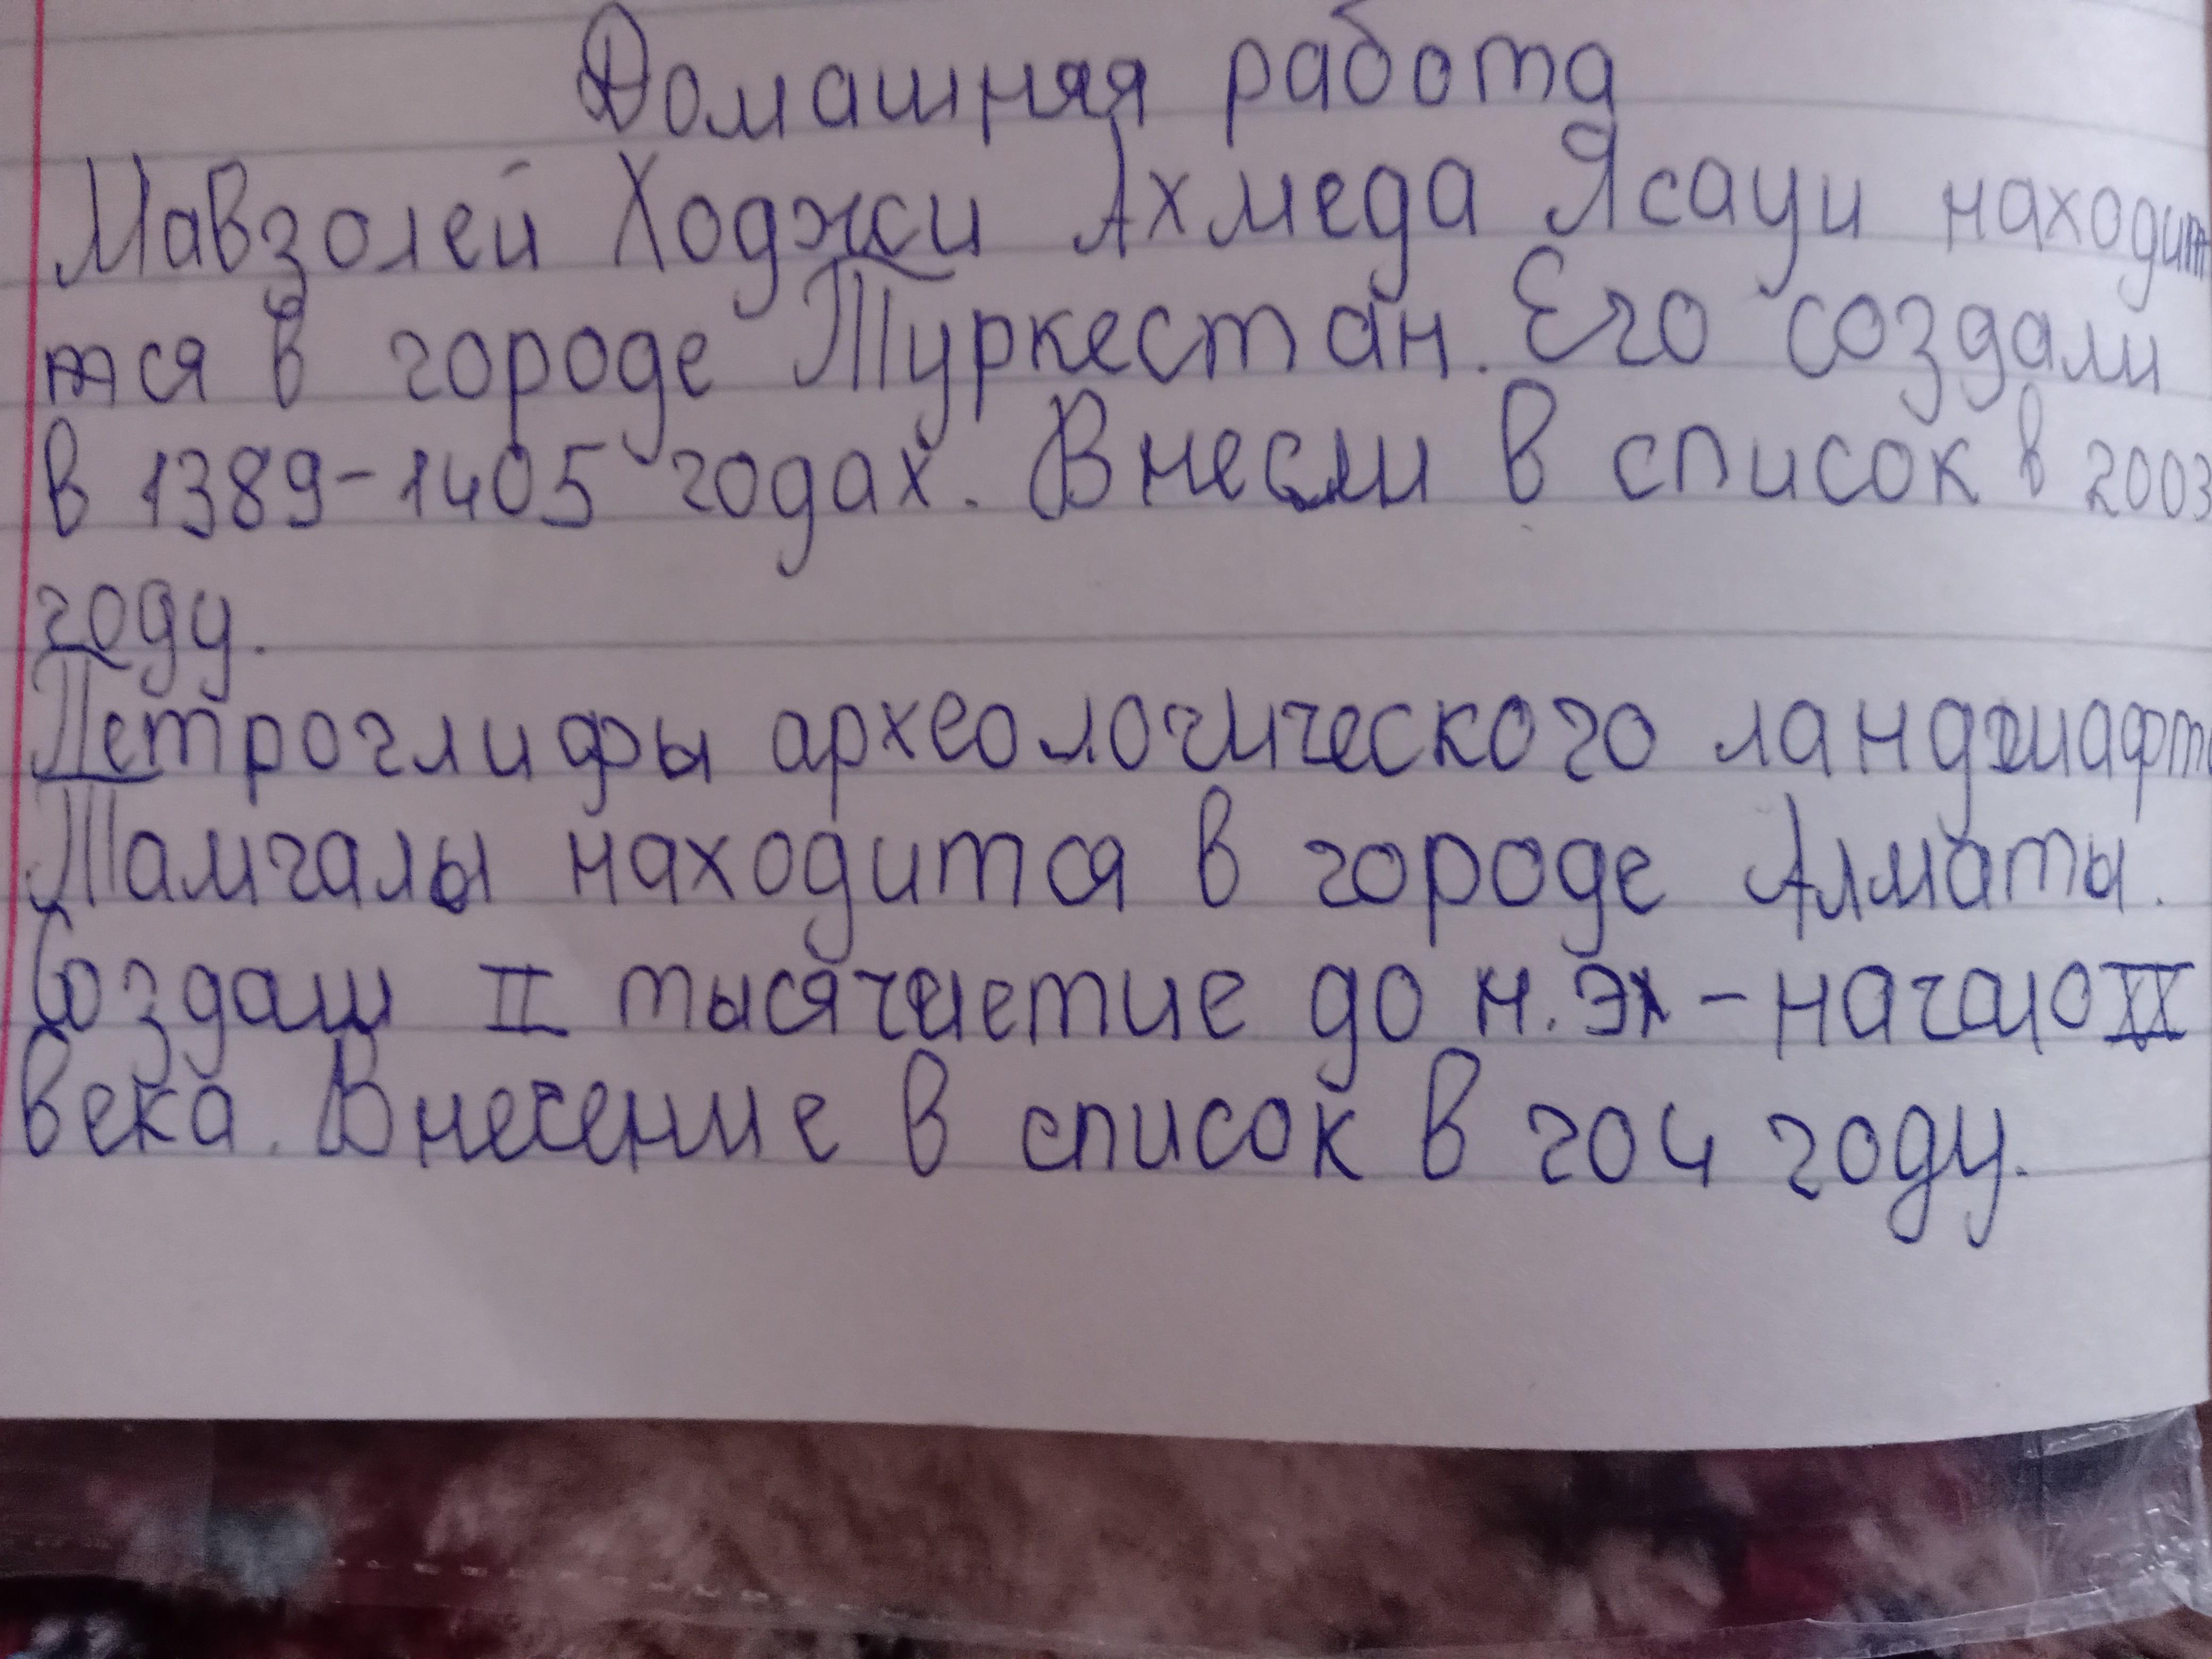 Домашняя работа
Мавзолей Ходжи Ахмеда Ясауи находит
тся в городе Туркестан. Его создали
в 1389-1405 годах. Внесли в список в 2003
году.
Петроглифы археологического ландшафта
Тамгалы находится в городе Алматы.
Создали II тысячелетие до н. эл - начало XX
века. Внесение в список в 204 году.